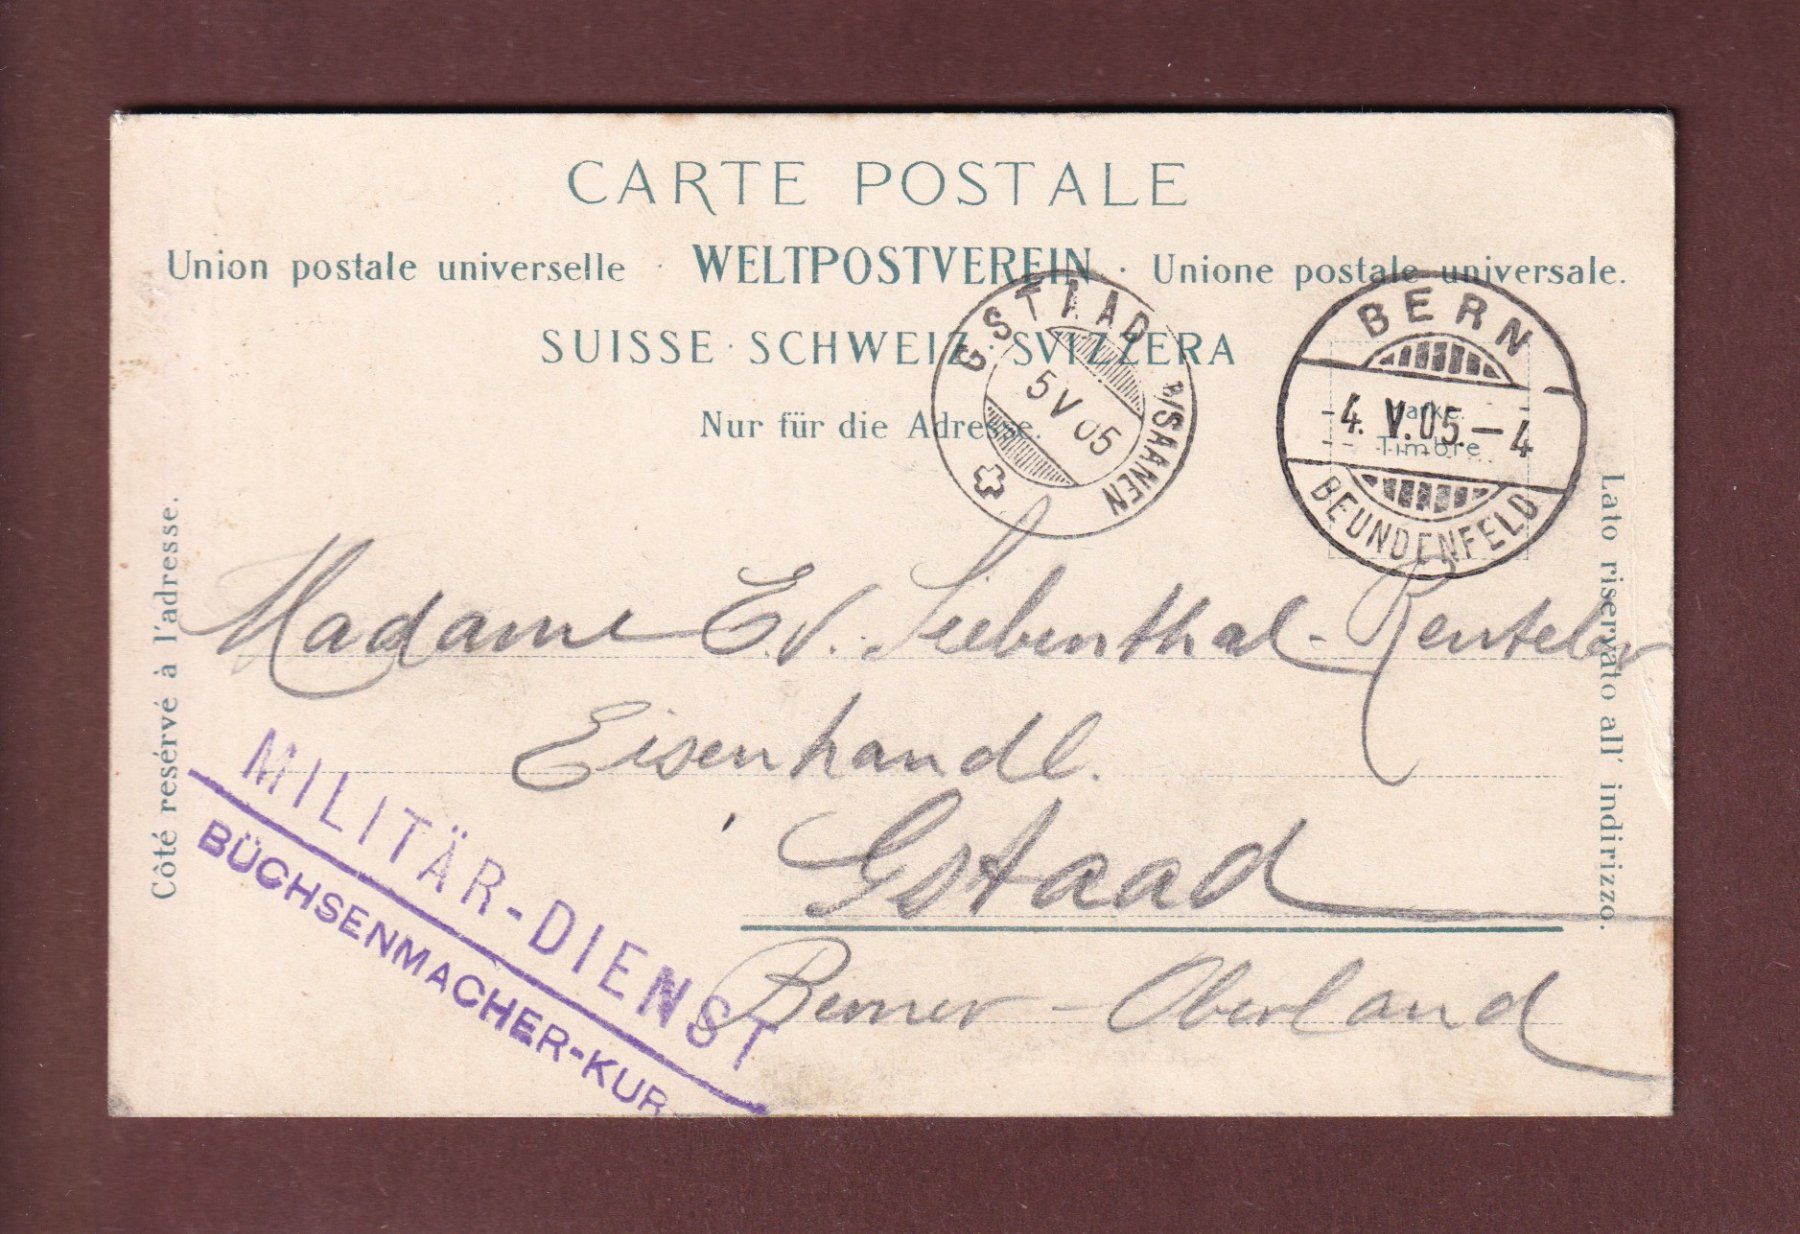 CARTE POSTALE
Union postale universelle · WELTPOSTVEREIN · Unione postale universale.
SUISSE · SCHWEIZ · SVIZZERA
Nur für die Adresse.
GSTAAD
b/SAANEN
5 V 05
BERN
-4. V. 05.-4
BEUNDENFELD
Marke.
Timbre
Côté resérvé à l'adresse.
Lato riservato all' indirizzo.
Madame E.v. Siebenthal-
Eisenhandl.
Gstaad
Berner-Oberland
MILITÄR-DIENST
BÜCHSENMACHER-KUR